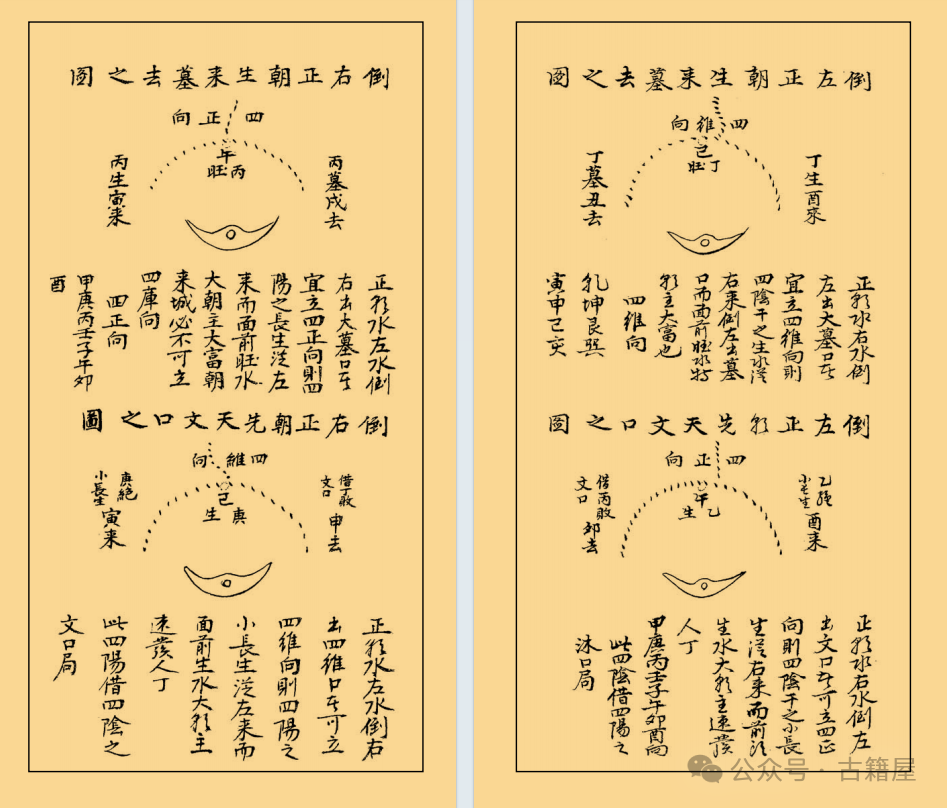 倒左正朝生来墓去之图
四維向
己
丁旺
丁生酉來
丁墓丑去
正朝水右水倒
左出大墓口者
宜立四維向則
四陰干之生水從
右来倒左出墓
口而面前旺水特
朝主大富也
四維向
乾坤艮巽
寅申己亥
倒左正朝先天文口之图
四正向
午
乙生
乙絕
小長生
酉来
借丙敗
文口
卯去
正朝水右水倒左
出文口者可立四正
向則四陰干之小長
生從右来而前
生水大朝主速發
人丁
甲庚丙壬子午卯酉向
此四陰借四陽之
沐口局
倒右正朝生来墓去之图
四正向
午
丙旺
丙墓戌去
丙生寅来
正朝水左水倒
右出大墓口者
宜立四正向則四
陽之長生從左
来而面前旺水
大朝主大富朝
来城必不可立
四庫向
四正向
甲庚丙壬子午卯
酉
倒右正朝先天文口之圖
四維向
己
庚生
借丁敗
文口
申去
庚絕
小長生
寅来
正朝水左水倒右
出四維口者可立
四維向則四陽之
小長生從左来而
面前生水大朝主
速發人丁
此四陽借四陰之
文口局
公众号·古籍屋